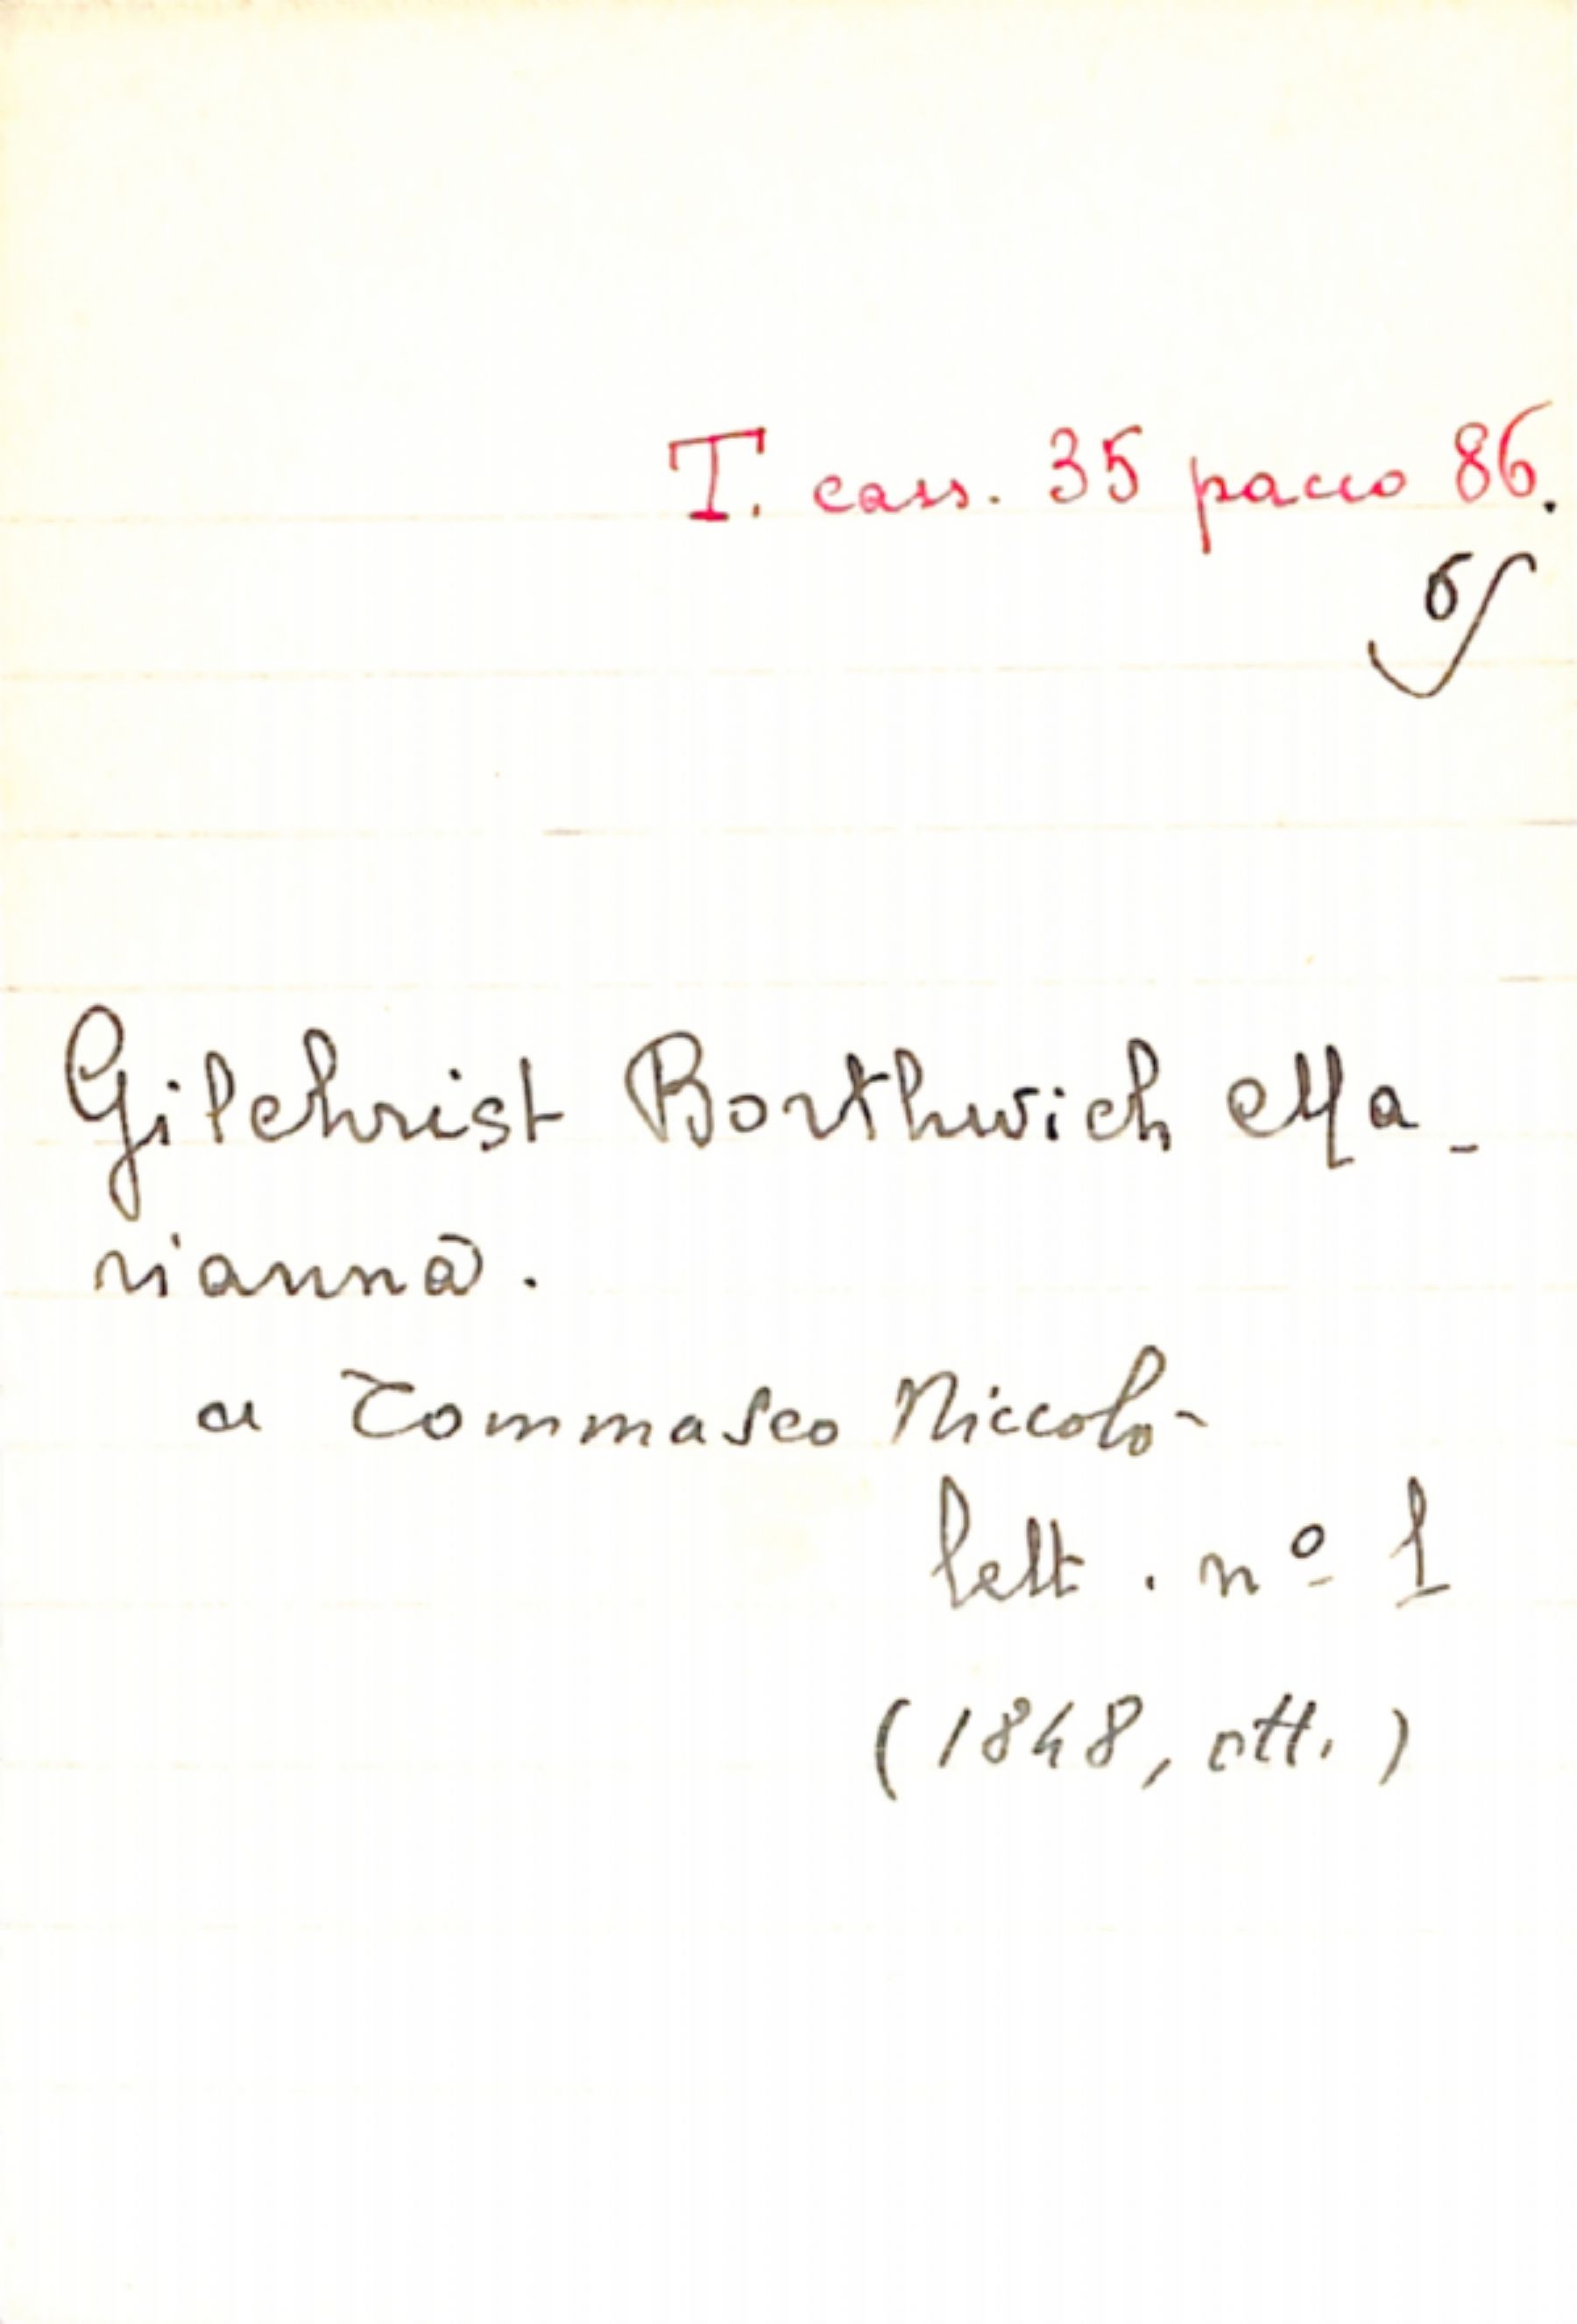 T. cass. 35 pacco 86.
6
Gilchrist Borthwich Ma-
rianna.
a Tommaseo Niccolò
lett. nº 1
(1848, ott.)